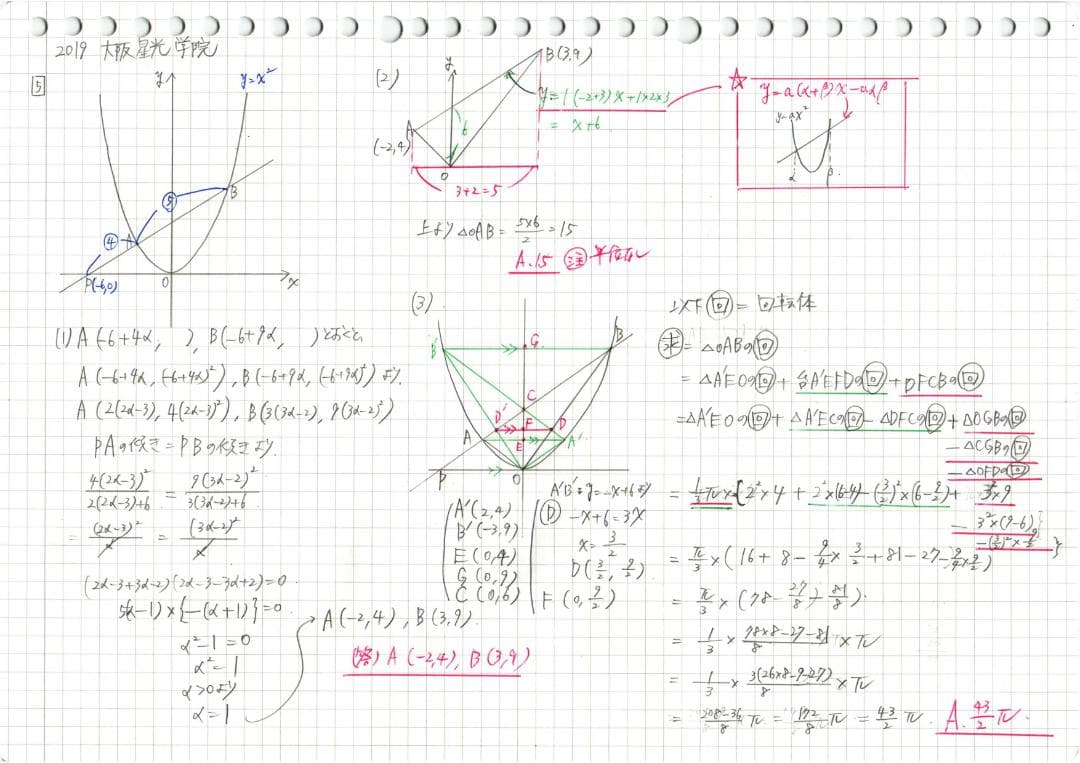 2019 大阪星光学院
5
y
y=x²
⑤
④
A
B
P(-6,0)
O
x
(1) A(-6+4α, ), B(-6+9α, )とおくと
A(-6+4α, (-6+4α)²), B(-6+9α, (-6+9α)²)より、
A(2(2α-3), 4(2α-3)²), B(3(3α-2), 9(3α-2)²)
PAの傾き=PBの傾きより、
4(2α-3)²/2(2α-3)+6 = 9(3α-2)²/3(3α-2)+6
= (2α-3)²/α = (3α-2)²/α
(2α-3+3α-2)(2α-3-3α+2)=0
5(α-1)×{-(α+1)}=0
α²-1=0
α²=1
α>0より
α=1
A(-2,4), B(3,9)
(答) A(-2,4), B(3,9)
(2)
y
B(3,9)
y=1(-2+3)x+1×2×3
= x+6
6
A
(-2,4)
O
3+2=5
☆
y=a(α+β)x-aαβ
y=ax²
α
β
上より△OAB= 5×6/2 =15
A.15 注 単位なし
(3)
B'
G
B
C
D'
F
D
A
E
A'
P
O
A'(2,4)
B'(-3,9)
E(0,4)
G(0,9)
C(0,6)
A'B': y=-x+6より
D -x+6=3x
x=3/2
D(3/2, 9/2)
F(0, 9/2)
以下 回 = 回転体
求 = △OABの回
= △A'EOの回 + 台A'EFDの回 + DFCBの回
= △A'EOの回 + △A'ECの回 - △DFCの回 + △OGBの回
- △CGBの回
- △OFDの回
= 1/3π×{2²×4 + 2²×(6-4) - (3/2)²×(6-9/2) + 3²×9
- 3²×(9-6)
- (3/2)²×9/2}
= π/3×(16+8-9/4×3/2+81-27-9/4×9/2)
= π/3×(78-27/8-81/8)
= 1/3×78×8-27-81/8×π
= 1/3×3(26×8-9-27)/8×π
= 208-36/8π = 172/8π = 43/2π. A. 43/2π.